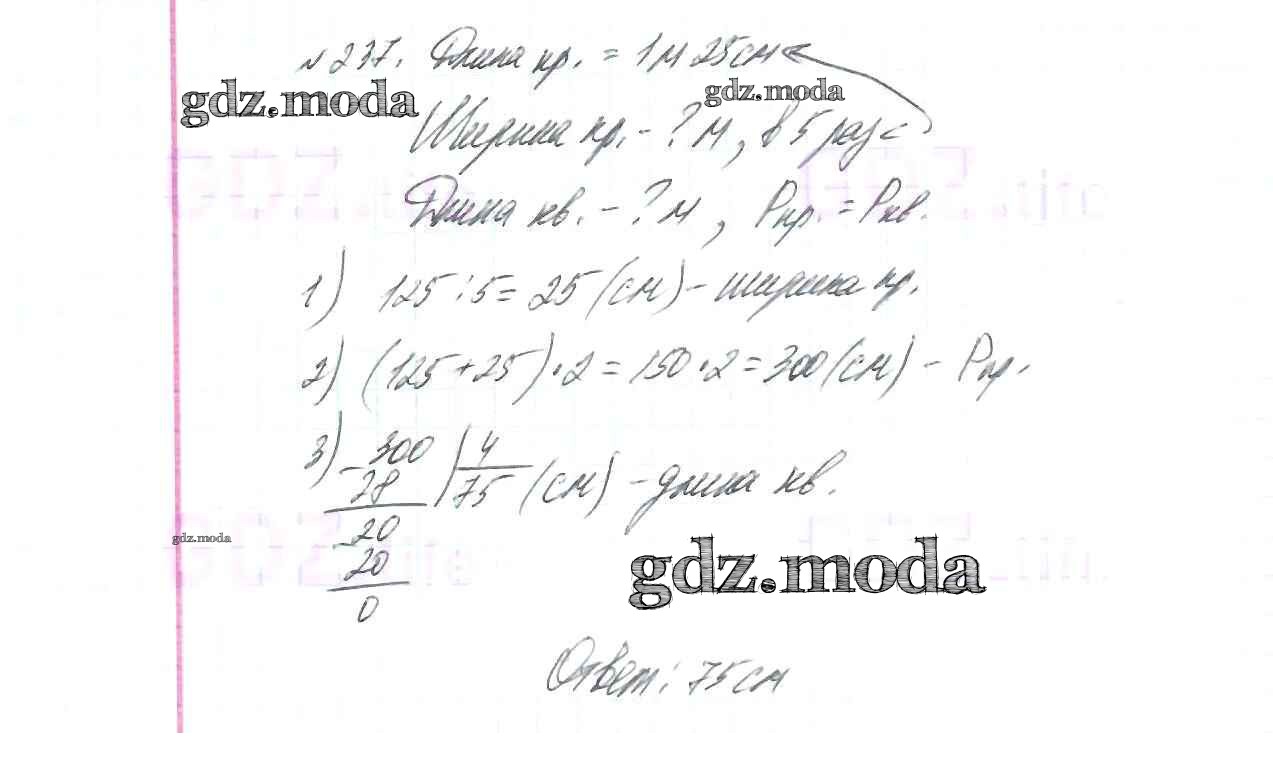 № 237. Длина пр. = 1м 25см
gdz.moda
gdz.moda
Ширина пр. - ? м, в 5 раз <
Длина кв. - ? м, Рпр. = Ркв.
1) 125 : 5 = 25 (см) - ширина пр.
2) (125 + 25) · 2 = 150 · 2 = 300 (см) - Рпр.
3) - 300 | 4
28 | 75 (см) - длина кв.
- 20
20
0
gdz.moda
gdz.moda
Ответ: 75 см